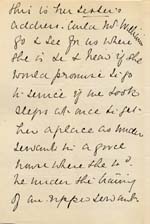 this is her sister's
address. Could Mr Merriman
go & see for us where
she is & hear if she
would promise to go
to service if we took
steps at once to get
her a place as under
servant in a good
house where she wd.
be under the training
of an upper servant.